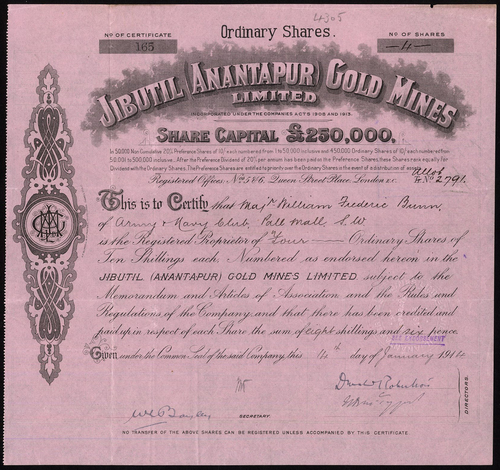 4305
Nº OF CERTIFICATE
165
Ordinary Shares.
Nº OF SHARES
—4—
JIBUTIL (ANANTAPUR) GOLD MINES
LIMITED
INCORPORATED UNDER THE COMPANIES ACTS 1908 AND 1913.
SHARE CAPITAL £250,000,
In 50,000 Non Cumulative 20% Preference Shares of 10/- each numbered from 1 to 50,000 inclusive and 450,000 Ordinary Shares of 10/- each numbered from
50,001 to 500,000 inclusive. After the Preference Dividend of 20% per annum has been paid on the Preference Shares, these Shares rank equally for
Dividend with the Ordinary Shares. The Preference Shares are entitled to priority over the Ordinary Shares in the event of a distribution of assets.
Registered Offices: Nº 5&6, Queen Street Place, London E.C.
Allot
Tr. Nº 2791.
This is to Certify that Majr. William Frederic
of Army & Navy Club, Pall Mall, S.W
is the Registered Proprietor of Four — Ordinary Shares of
Ten Shillings each, Numbered as endorsed hereon in the
JIBUTIL (ANANTAPUR) GOLD MINES LIMITED, subject to the
Memorandum and Articles of Association and the Rules and
Regulations of the Company, and that there has been credited and
paid up in respect of each Share the sum of eight shillings and six pence.
SEE ENDORSEMENT
Given under the Common Seal of the said Company, this 14th day of January 1914
DIRECTORS.
SECRETARY.
NO TRANSFER OF THE ABOVE SHARES CAN BE REGISTERED UNLESS ACCOMPANIED BY THIS CERTIFICATE.